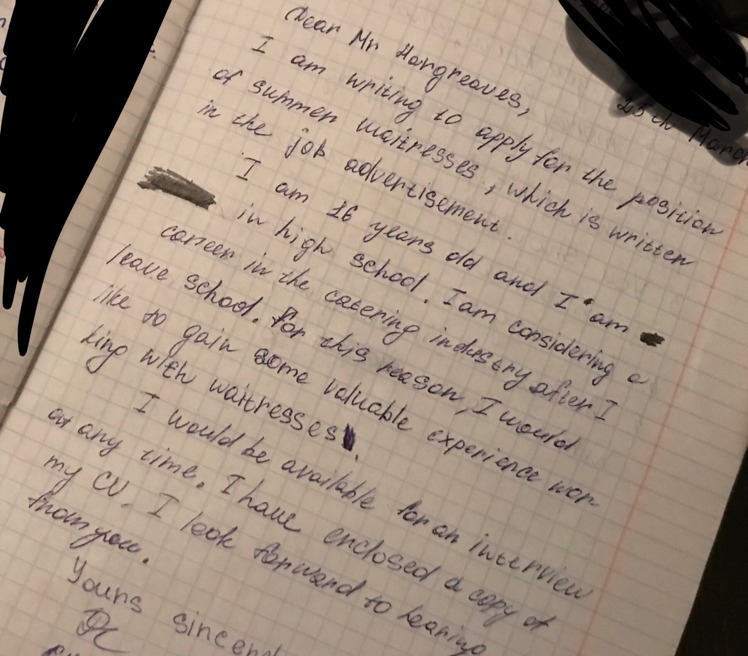 25th March
Dear Mr Hargreaves,
I am writing to apply for the position
of summer waitresses, which is written
in the job advertisement.
I am 16 years old and I am
in high school. I am considering a
career in the catering industry after I
leave school. For this reason, I would
like to gain some valuable experience wor
king with waitresses.
I would be available for an interview
at any time. I have enclosed a copy of
my CV. I look forward to hearing
from you.
Yours